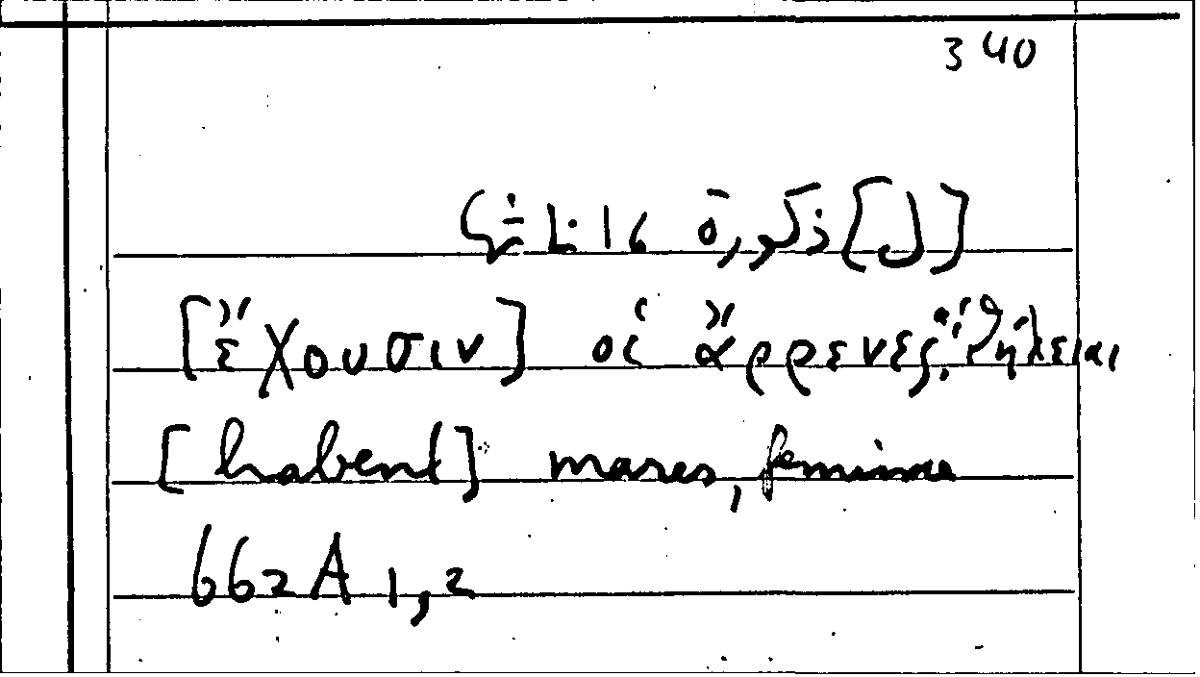 340
[ἔχουσιν] οἱ ἄρρενες, αἱ θήλειαι
[habent] mares, feminae
662A 1,2